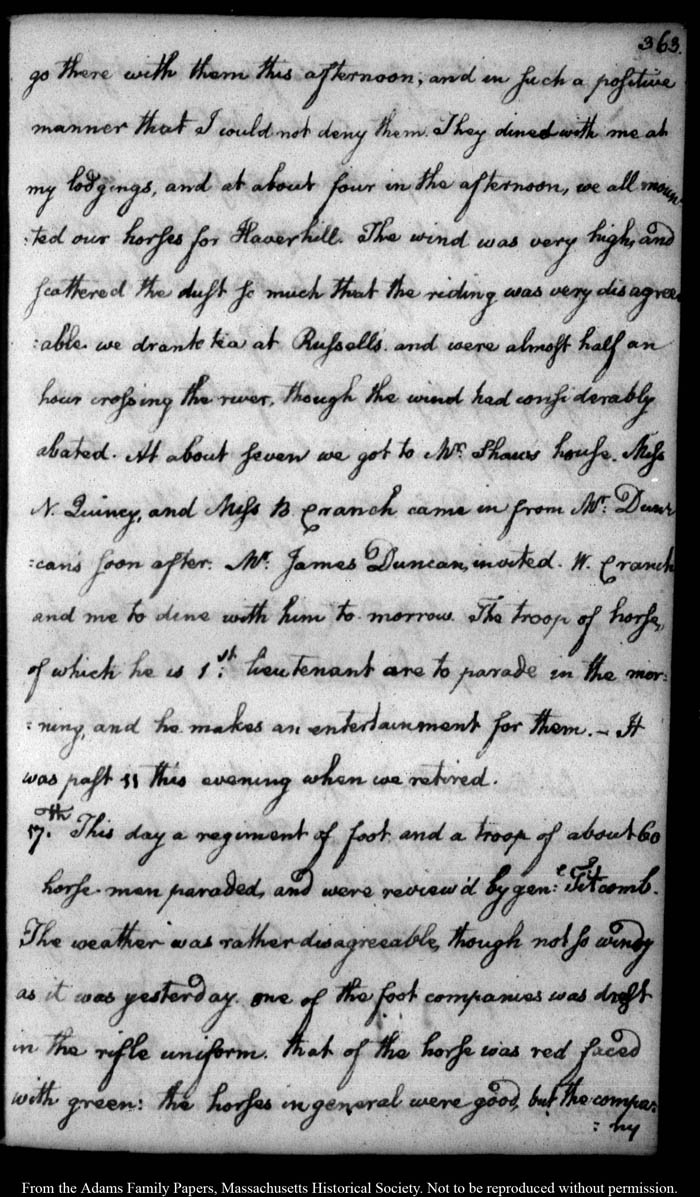 363.
go there with them this afternoon, and in such a positive
manner that I could not deny them. They dined with me at
my lodgings, and at about four in the afternoon, we all moun
:ted our horses for Haverhill. The wind was very high, and
scattered the dust so much that the riding was very disagree
:able. we drank tea at Russells. and were almost half an
hour crossing the river, though the wind had considerably
abated. At about seven we got to Mr. Shaws house. Miss
N. Quincy, and Miss B Cranch came in from Mr. Dun
:cans soon after. Mr. James Duncan, invited. W. Cranch
and me to dine with him to morrow. The troop of horse,
of which he is 1st: lieutenant are to parade in the mor:
:ning, and he makes an entertainment for them. – It
was past 11 this evening when we retired.
17.th This day a regiment of foot and a troop of about 60
horse-men paraded, and were review'd by gen:l Titcomb.
The weather was rather disagreeable, though not so windy
as it was yesterday. one of the foot companies was drest
in the rifle uniform. that of the horse was red faced
with green: the horses in general were good, but the compa:
:ny
From the Adams Family Papers, Massachusetts Historical Society. Not to be reproduced without permission.